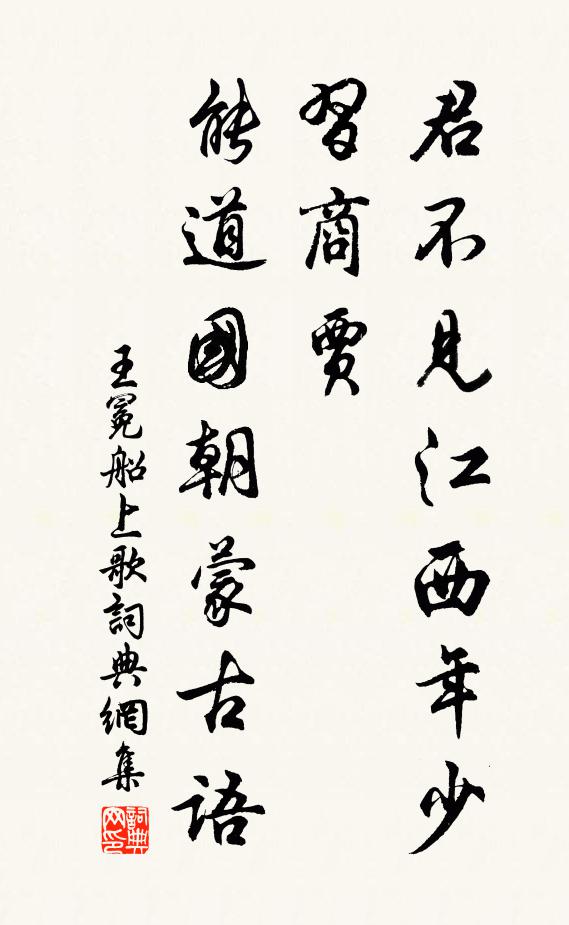 君不見江西年少
習商賈
能道國朝蒙古語
王冕船上歌詞典網集
詞典網印